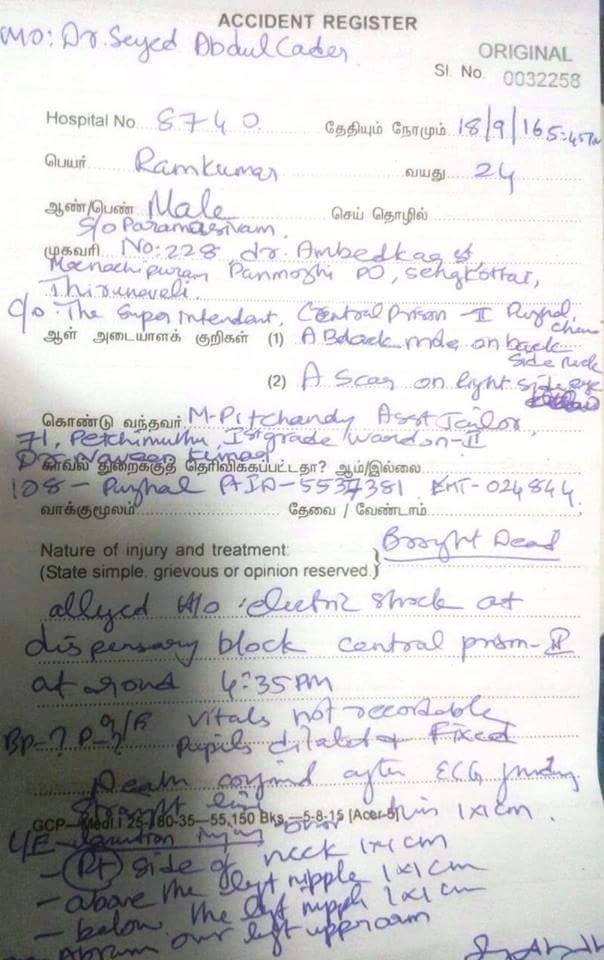 ACCIDENT REGISTER
MO: Dr. Seyed Abdul Cader
ORIGINAL
Sl. No. 0032258
Hospital No 8740 தேதியும் நேரமும் 18/9/16 5:45
பெயர் Ramkumar வயது 24
ஆண்/பெண் Male செய் தொழில்
S/o Paramasivam.
முகவரி No: 228 dr. Ambedkar st,
Meenachipuram Panmozhi PO, Sengkottai,
Thirunaveli.
C/o: The Superintendant, Central Prison-II Puzhal,
ஆள் அடையாளக் குறிகள் (1) A Black mole on back
side neck
(2) A Scar on right side
கொண்டு வந்தவர் M. Pitchandy Asst Jailor,
71, Petchimuthu, Ist grade warden-II
Dr. Naveen Kumar
காவல் துறைக்குத் தெரிவிக்கப்பட்டதா? ஆம்/இல்லை
108 - Puzhal 5537381 EMT-024844
வாக்குமூலம் தேவை / வேண்டாம்
Nature of injury and treatment: Brought Dead
(State simple, grievous or opinion reserved.)
alleged H/o electric shock at
dispensary block central prison-II
at around 4:35PM
BP-? P-? vitals not recordable
Pupils dilated & Fixed
Death after ECG
straight line
GCP—Medl.I 25-780-35—55,150 Bks.—5-8-15 [Acer-5]
L/E - injury over 1x1cm.
- (Rt) side of neck 1x1cm
- above the left nipple 1x1cm
- below the left nipple 1x1cm
over left upperarm